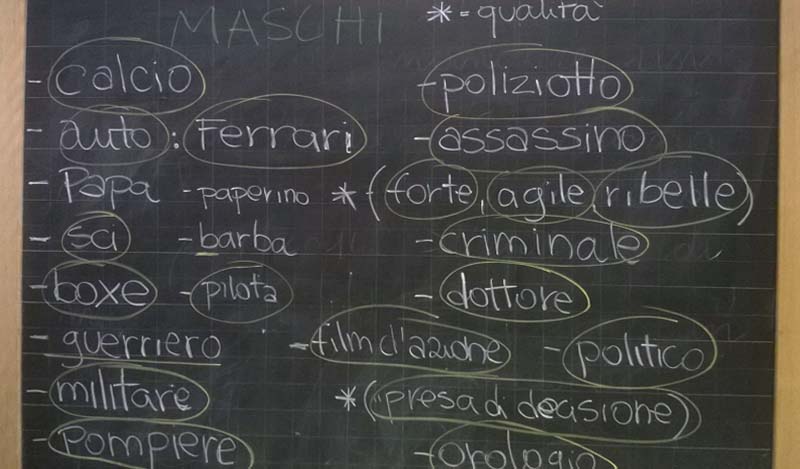 MASCHI *=qualità
- calcio
- auto: Ferrari
- Papa - paperino
- sci - barba
- boxe - pilota
- guerriero
- militare
- pompiere
- poliziotto
- assassino
*(forte, agile, ribelle)
- criminale
- dottore
- film d'azione - politico
*(presa di decisione)
- orologio